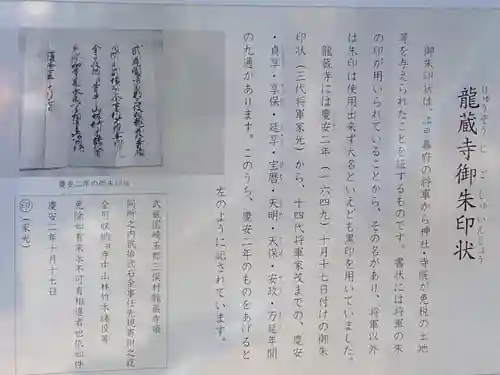 龍蔵寺御朱印状
りゅうぞうじごしゅいんじょう
御朱印状は、江戸幕府の将軍から神社・寺院が免税の土地
等を与えられたことを証するものです。書状には将軍の朱
の印が用いられていることから、その名があり、将軍以外
は朱印は使用出来ず大名といえども黒印を用いていました。
龍蔵寺には慶安二年（一六四九）十月十七日付けの御朱
印状（三代将軍家光）から、十四代将軍家茂までの、慶安
・貞享・享保・延享・宝暦・天明・天保・安政・万延年間
の九通があります。このうち、慶安二年のものをあげると
左のように記されています。
慶安二年の御朱印状
武蔵國埼玉郡三俣村龍蔵寺領
同所之内貳拾弐石全事任先規寄附之段
全可収納并寺中山林竹木諸役等
免除如有来永不可有相違者也依如件
慶安二年十月十七日
印（家光）